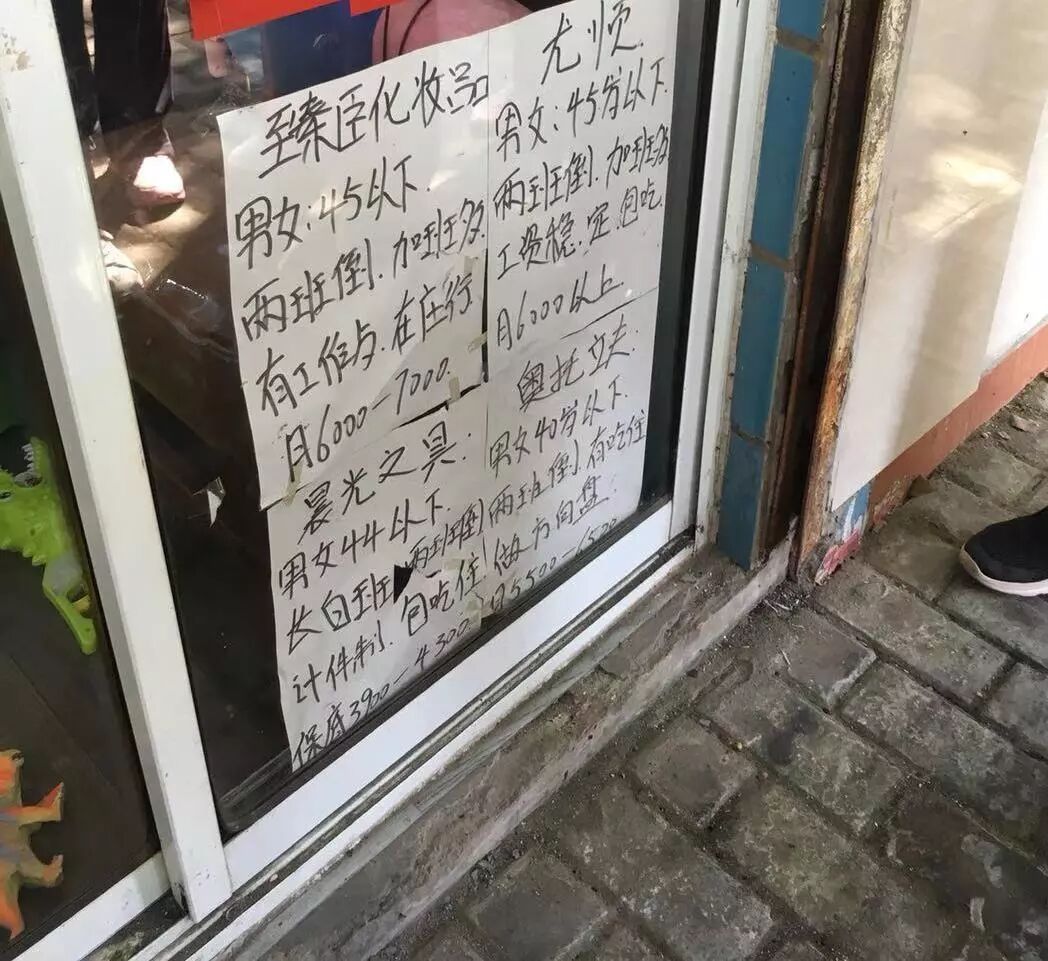 至臻臣化妆品
男女:45以下.
两班倒.加班多.
有工作与.在庄行
月6000-7000.
尤顺
男女:45岁以下.
两班倒.加班多
工资稳.定.包吃.
月6000以上
晨光之昊.
男女44以下.
长白班.两班倒
计件制.包吃住
保底3900-4300
奥托立夫
男女40岁以下.
两班倒.有吃住
做方向盘.
月5500-6500